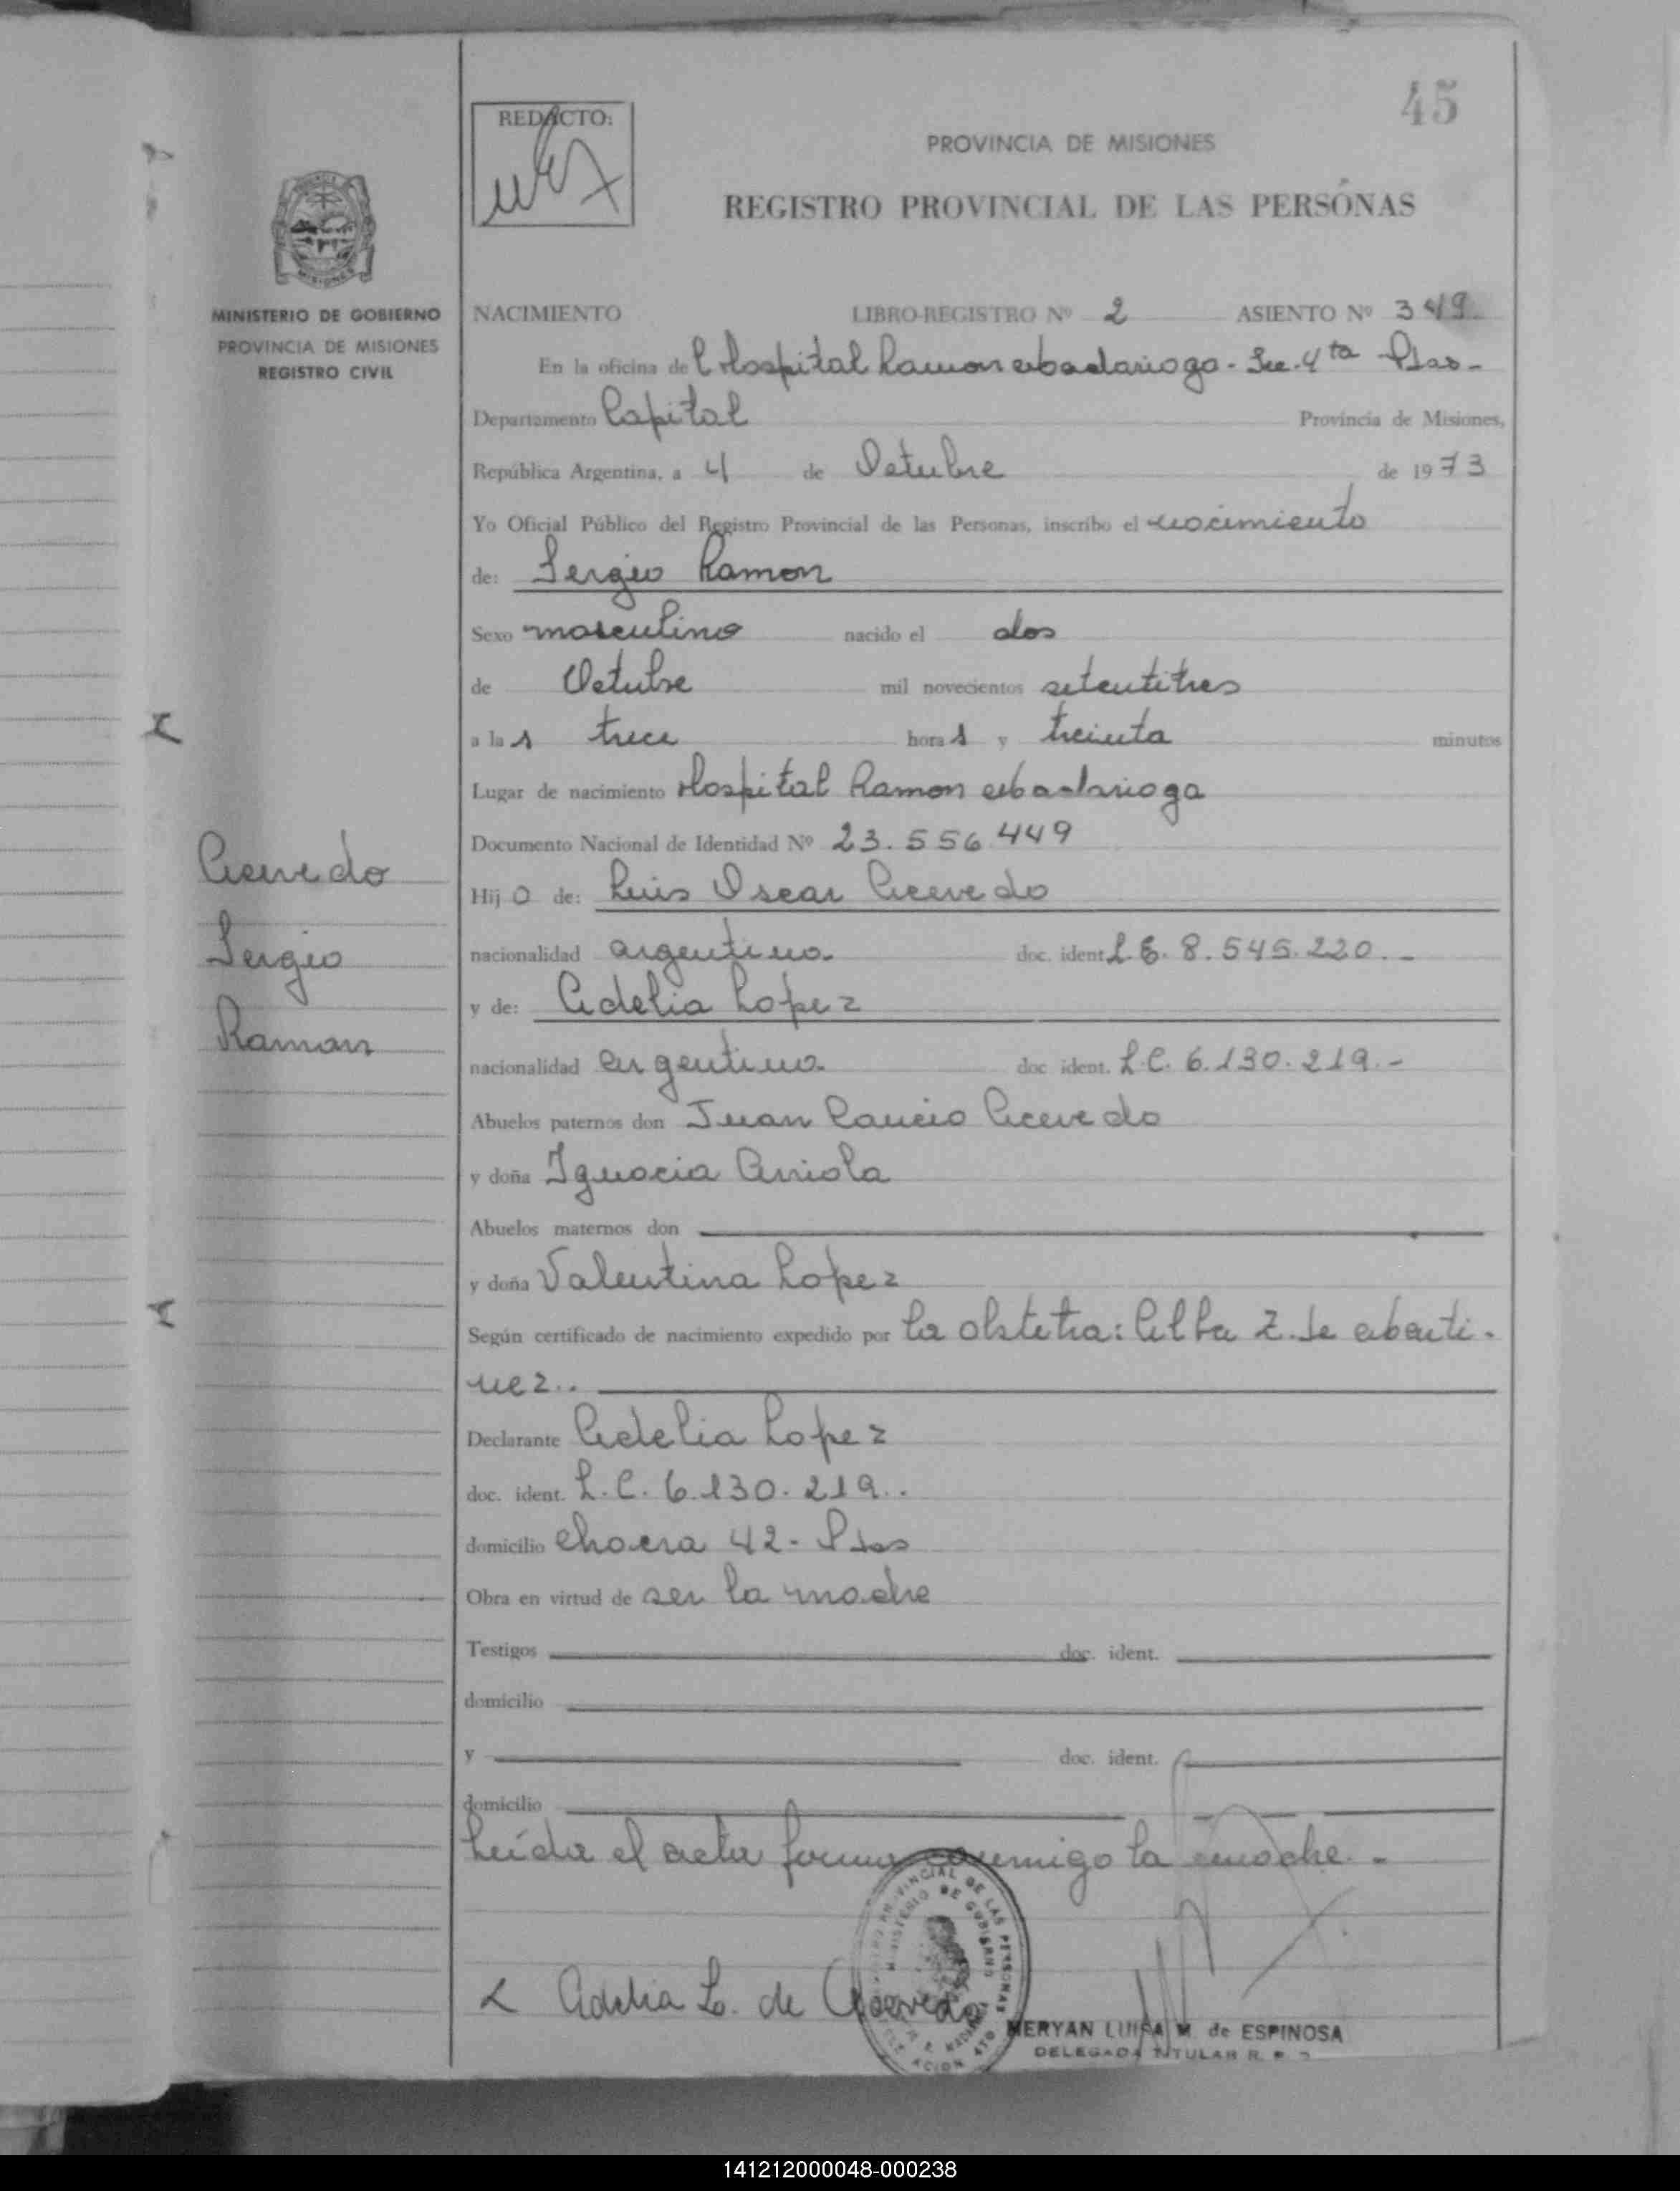 45
REDACTO:
PROVINCIA DE MISIONES
REGISTRO PROVINCIAL DE LAS PERSONAS
MINISTERIO DE GOBIERNO
PROVINCIA DE MISIONES
REGISTRO CIVIL
NACIMIENTO LIBRO-REGISTRO Nº 2 ASIENTO Nº 349
En la oficina del Hospital Ramon Madariaga - Sec. 4ta Pdas-
Departamento Capital Provincia de Misiones,
República Argentina, a 4 de Octubre de 1973
Yo Oficial Público del Registro Provincial de las Personas, inscribo el nacimiento
de: Sergio Ramon
Sexo masculino nacido el dos
de Octubre mil novecientos setentitres
a las trece horas y treinta minutos
Lugar de nacimiento Hospital Ramon Madariaga
Documento Nacional de Identidad Nº 23.556.449
Acevedo
Sergio
Ramon
Hijo de: Luis Oscar Acevedo
nacionalidad argentina doc. ident. L.E. 8.545.220.-
y de: Adelia Lopez
nacionalidad argentina doc. ident. L.C. 6.130.219.-
Abuelos paternos don Juan Acevedo
y doña Ignacia Arriola
Abuelos maternos don
y doña Valentina Lopez
Según certificado de nacimiento expedido por la obstetra: Alba Z. de Marti-
nez..
Declarante Adelia Lopez
doc. ident. L.C. 6.130.219..
domicilio Chacra 42 - Pdas
Obra en virtud de ser la madre
Testigos doc. ident.
domicilio
y doc. ident.
domicilio
Leída el acta firma conmigo la madre.-
Adelia L. de Acevedo
MERYAN LUISA M. de ESPINOSA
DELEGADA TITULAR R. P.
141212000048-000238